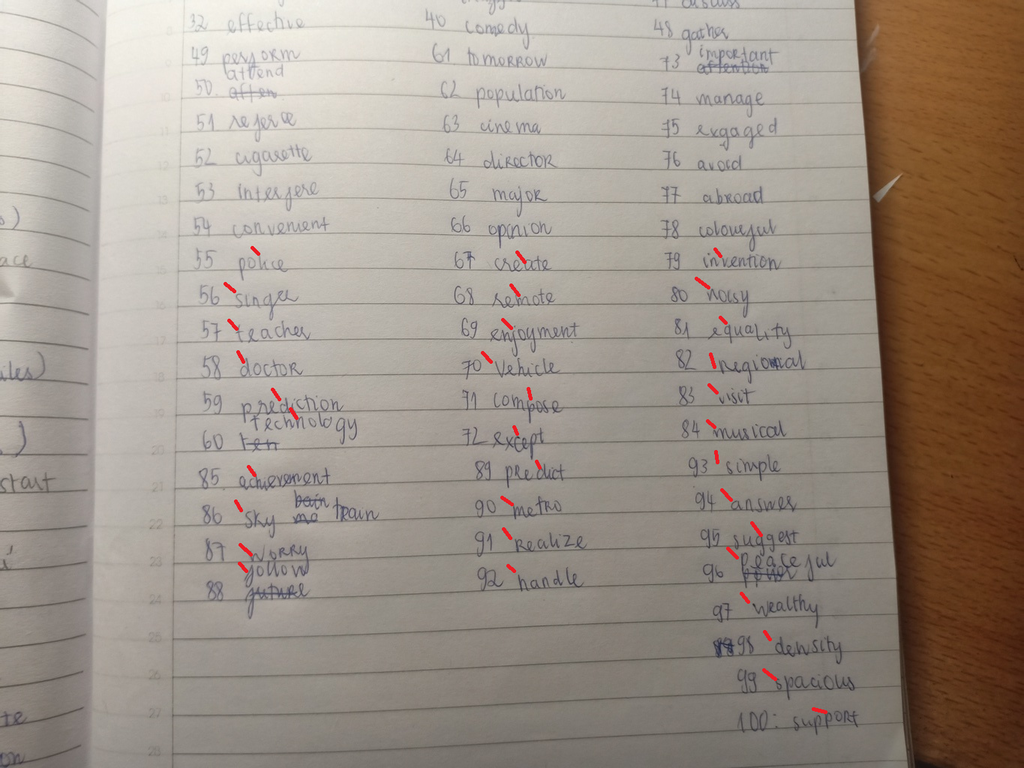 32 effective
49 perform
attend
50 often
51 reserve
52 cigarette
53 Interfere
54 convenient
55 police
56 singer
57 teacher
58 doctor
59 prediction
technology
60 ten
85 achievement
86 sky train
87 worry
follow
88 future
40 comedy
61 tomorrow
62 population
63 cinema
64 director
65 major
66 opinion
67 create
68 remote
69 enjoyment
70 vehicle
71 compose
72 except
89 predict
90 metro
91 realize
92 handle
discuss
48 gather
important
73 attention
74 manage
75 exgaged
76 avoid
77 abroad
78 colourful
79 invention
80 noisy
81 equality
82 regional
83 visit
84 musical
93 simple
94 answer
95 suggest
96 peaceful
97 wealthy
98 density
99 spacious
100: support
start